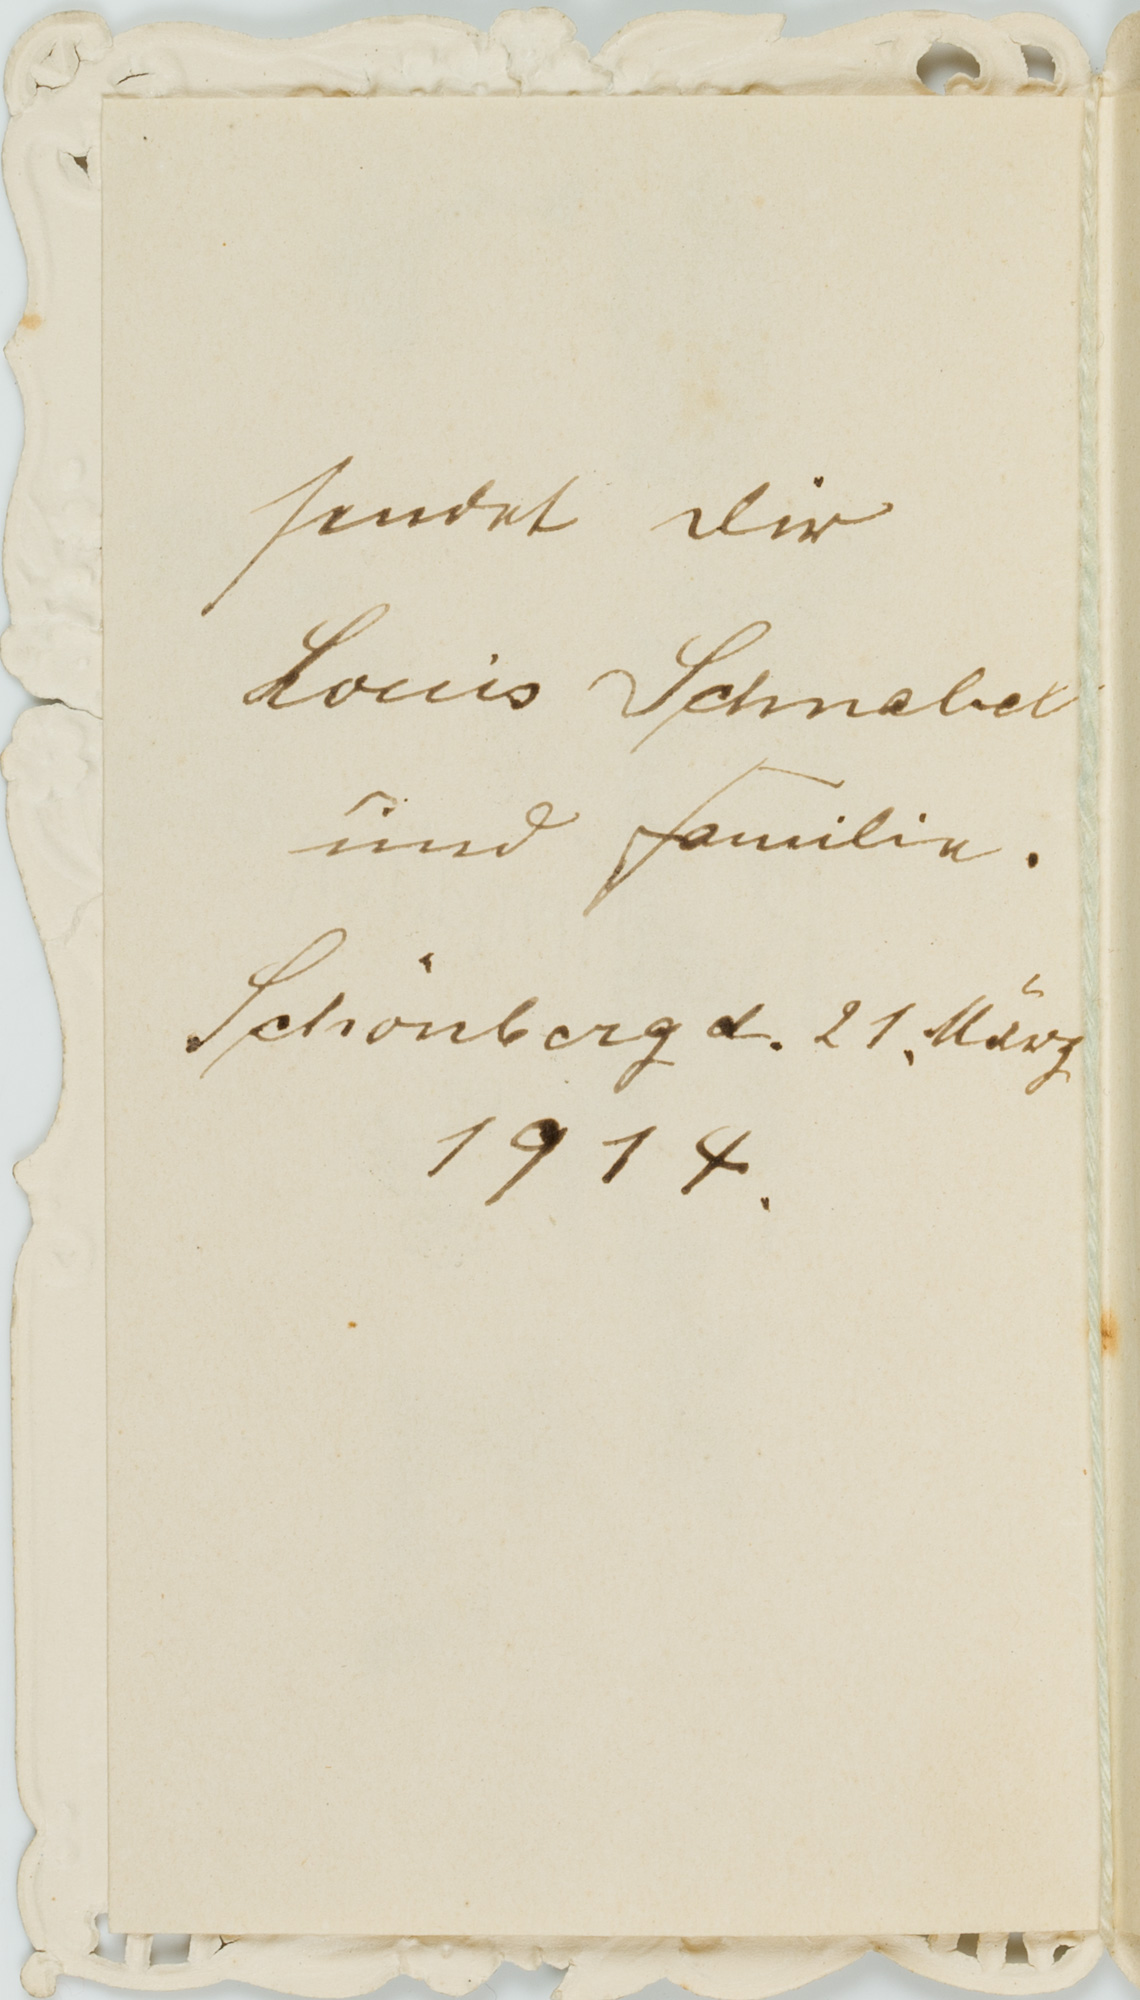 sendet Dir
Louis Schnabel
und Familie.
Schönberg d. 21. März
1914.